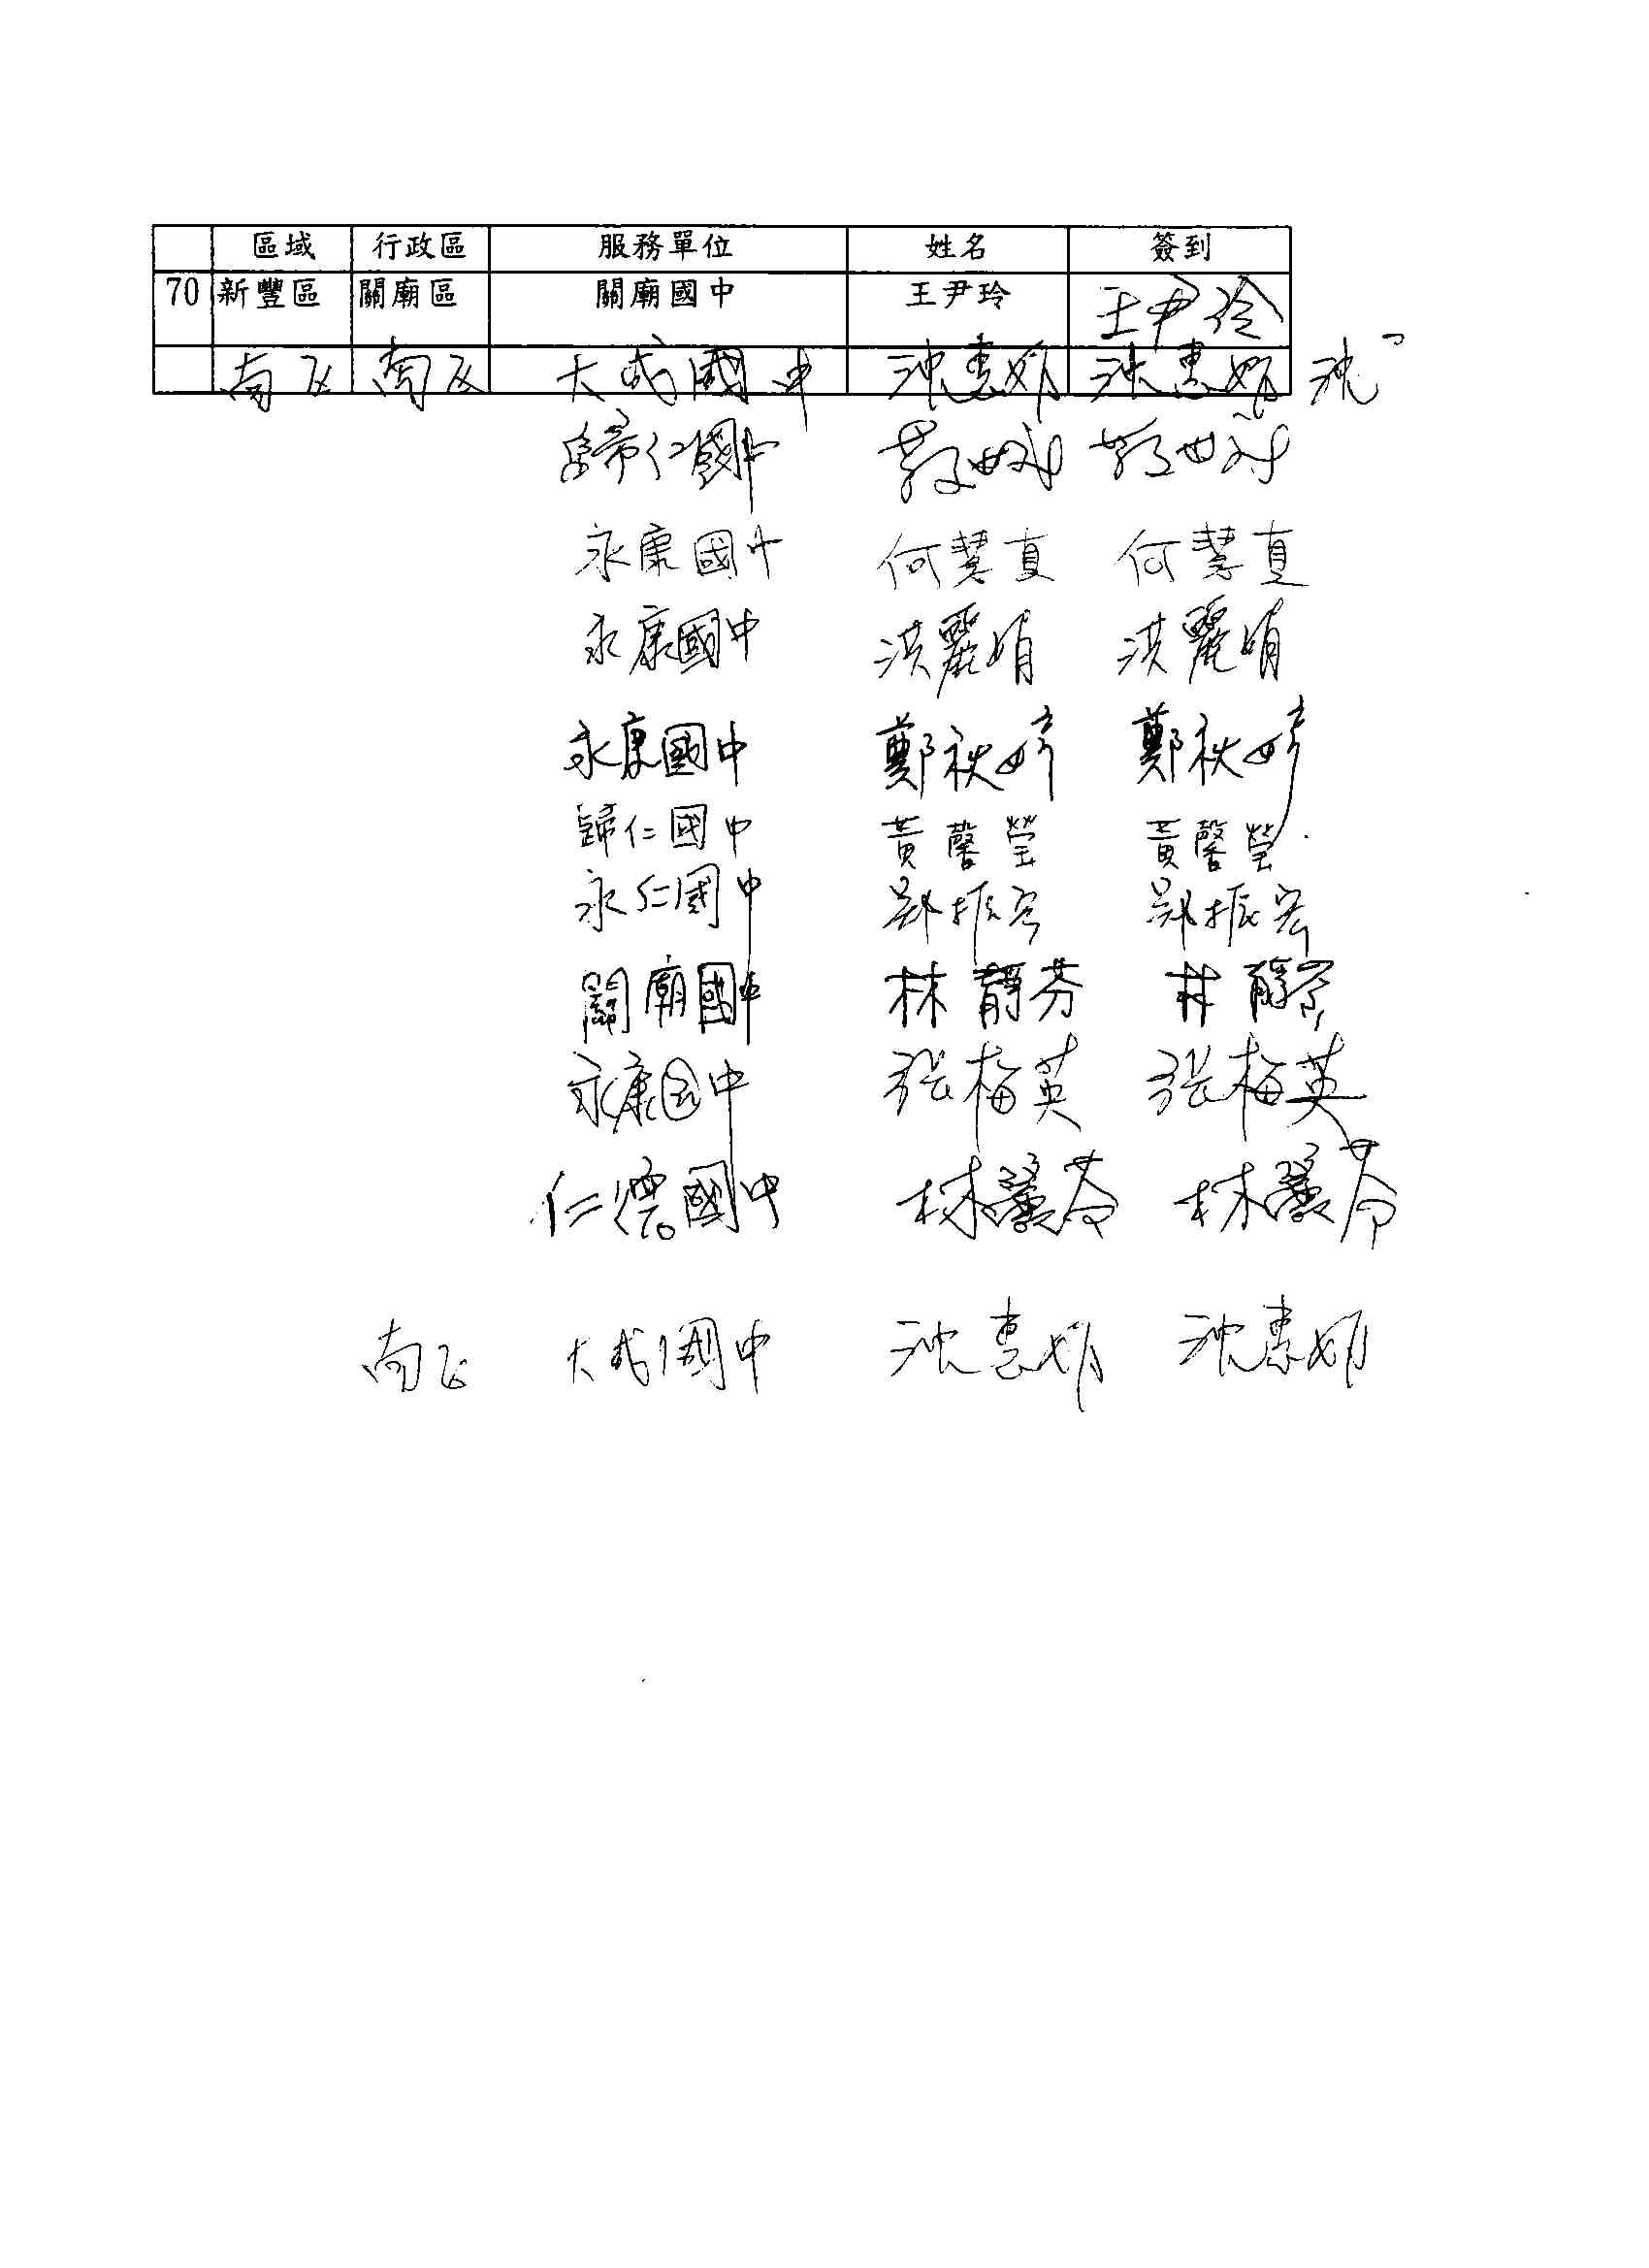 區域 行政區 服務單位 姓名 簽到
70 新豐區 關廟區 關廟國中 王尹玲 王尹玲
南区 南区 大成國中 沈惠娟 沈惠娟 沈
歸仁國中 世 世
永康國中 何慧真 何慧真
永康國中 洪麗娟 洪麗娟
永康國中 鄭秋婷 鄭秋婷
歸仁國中 黃馨瑩 黃馨瑩
永仁國中 鄭振宏 鄭振宏
關廟國中 林靜芬 林靜芬
永康国中 張梅英 張梅英
仁德國中 林鶯芩 林鶯芩
南区 大成國中 沈惠娟 沈惠娟